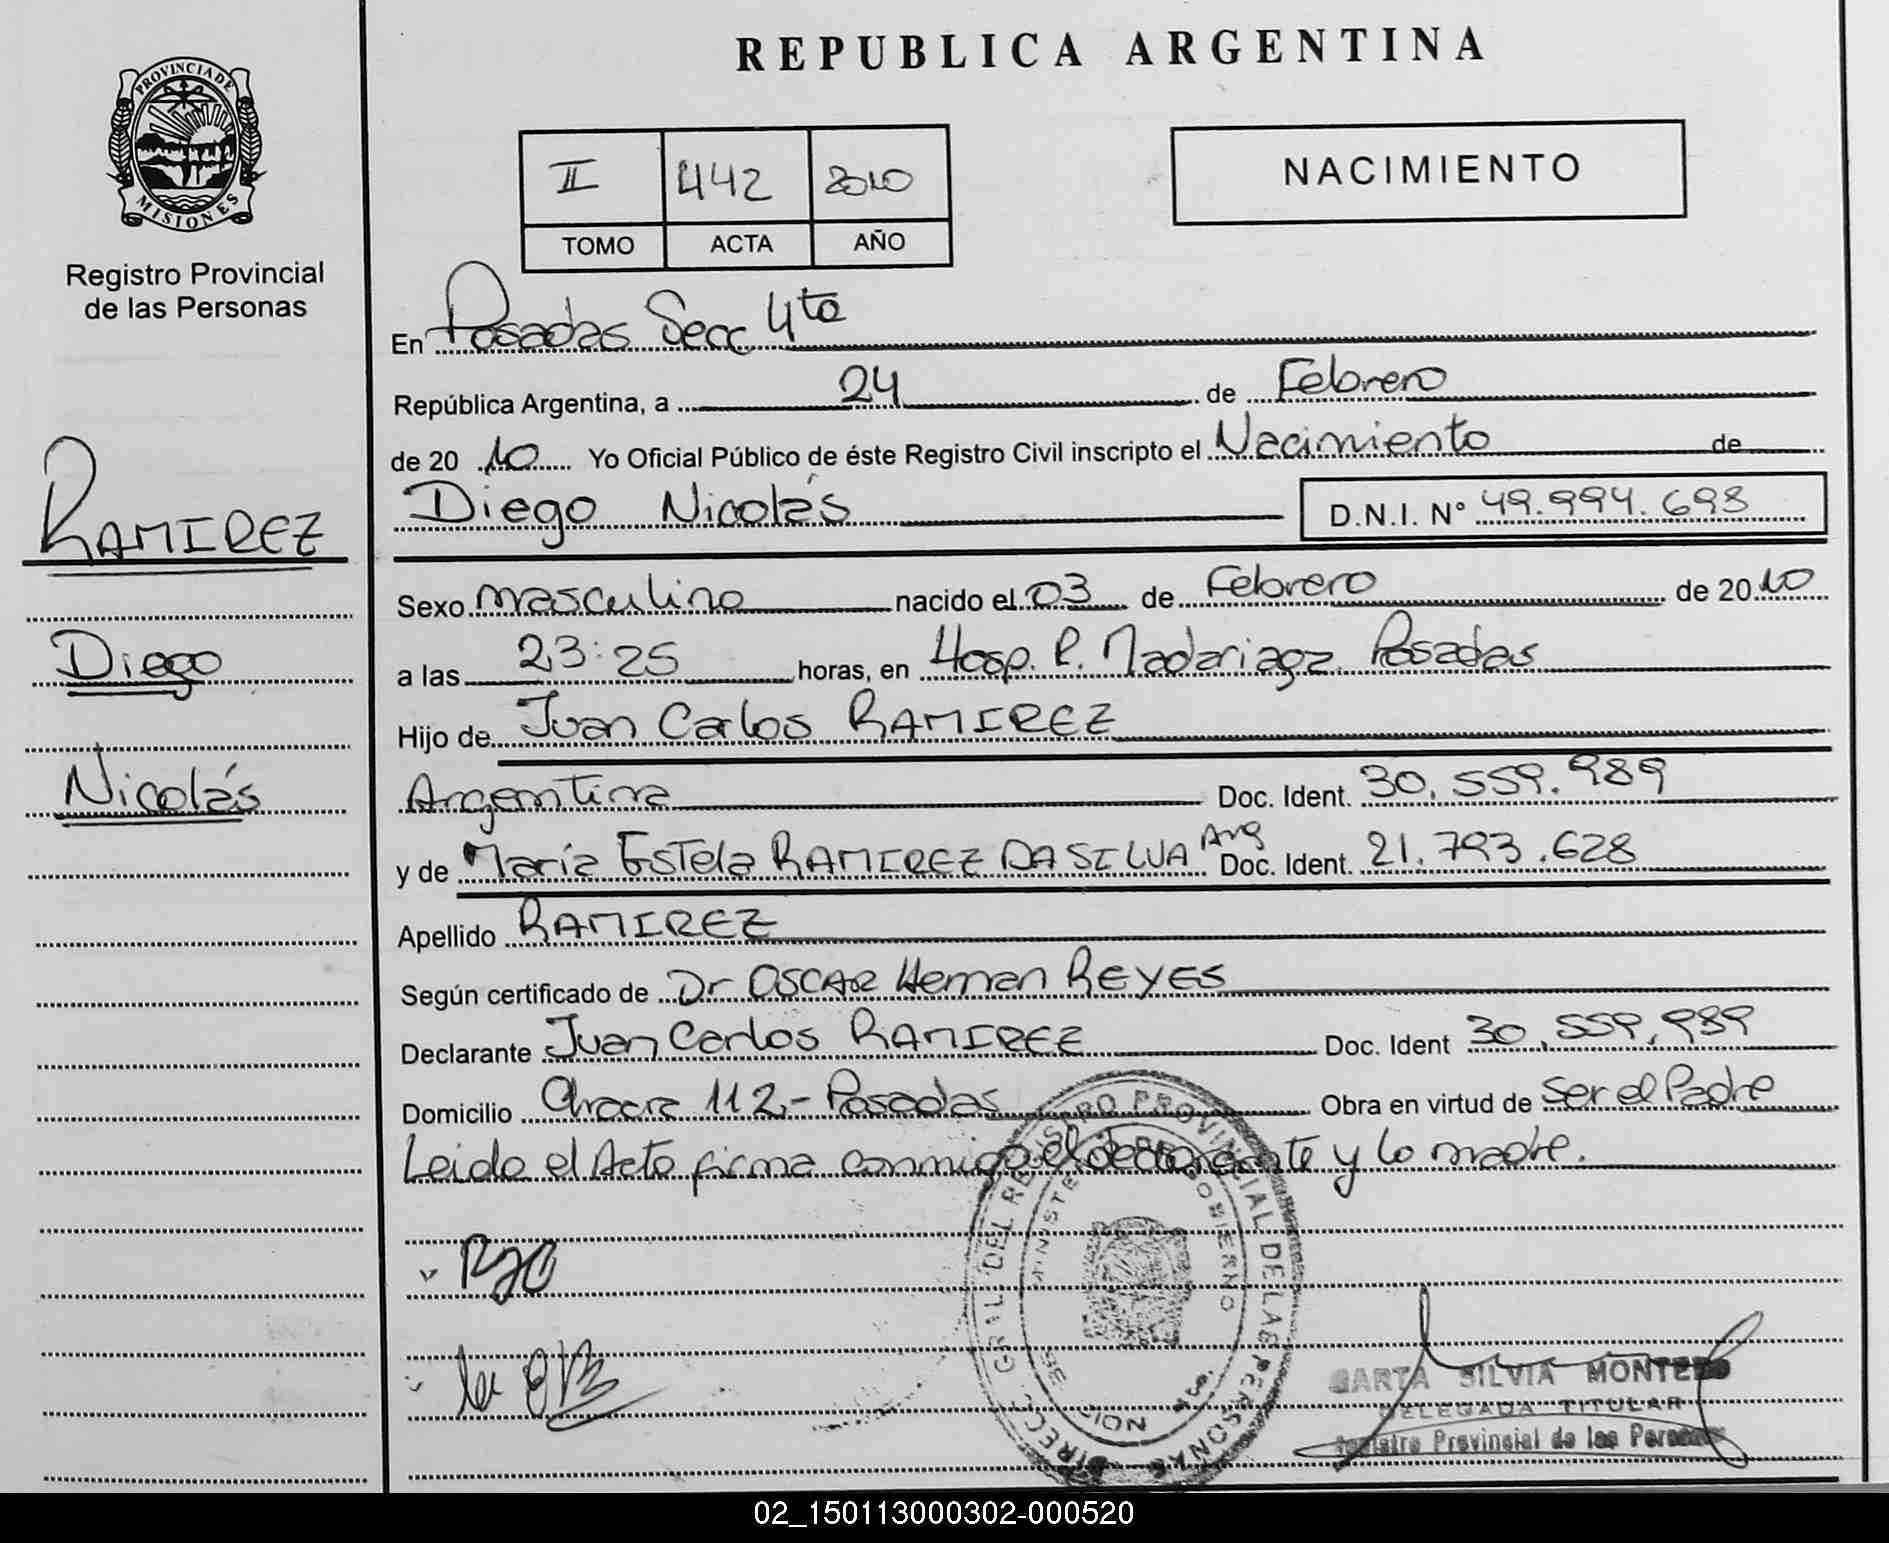 REPUBLICA ARGENTINA
PROVINCIA DE
MISIONES
Registro Provincial
de las Personas
II 442 2010
TOMO ACTA AÑO
NACIMIENTO
RAMIREZ
Diego
Nicolás
En Posadas Secc 4ta
República Argentina, a 24 de Febrero
de 2010 Yo Oficial Público de éste Registro Civil inscripto el Nacimiento de
Diego Nicolás D.N.I. N° 49.994.693
Sexo masculino nacido el 03 de Febrero de 2010
a las 23:25 horas, en Hosp. R. Madariaga Posadas
Hijo de Juan Carlos RAMIREZ
Argentina Doc. Ident. 30.559.989
y de María Estela RAMIREZ DA SILVA Arg Doc. Ident. 21.793.628
Apellido RAMIREZ
Según certificado de Dr OSCAR Hernan REYES
Declarante Juan Carlos RAMIREZ Doc. Ident 30.559.989
Domicilio Chacra 112.- Posadas Obra en virtud de Ser el Padre
Leida el Acta firma conmigo el declarante y la madre.
DIRECC. GRAL. DEL REGISTRO PROVINCIAL DE LAS PERSONAS
MINISTERIO DE GOBIERNO
MARTA SILVIA MONTERO
DELEGADA TITULAR
Registro Provincial de las Personas
02_150113000302-000520